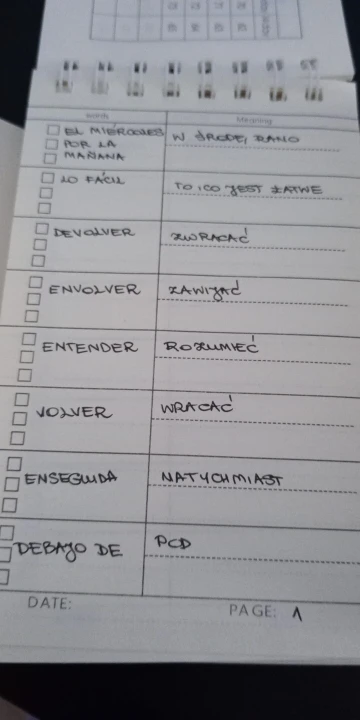 Words Meaning
EL MIÉRCOLES W ŚRODĘ RANO
POR LA
MAÑANA
LO FÁCIL TO, CO JEST ŁATWE
DEVOLVER ZWRACAĆ
ENVOLVER ZAWIJAĆ
ENTENDER ROZUMIEĆ
VOLVER WRACAĆ
ENSEGUIDA NATYCHMIAST
DEBAJO DE POD
DATE: PAGE: 1